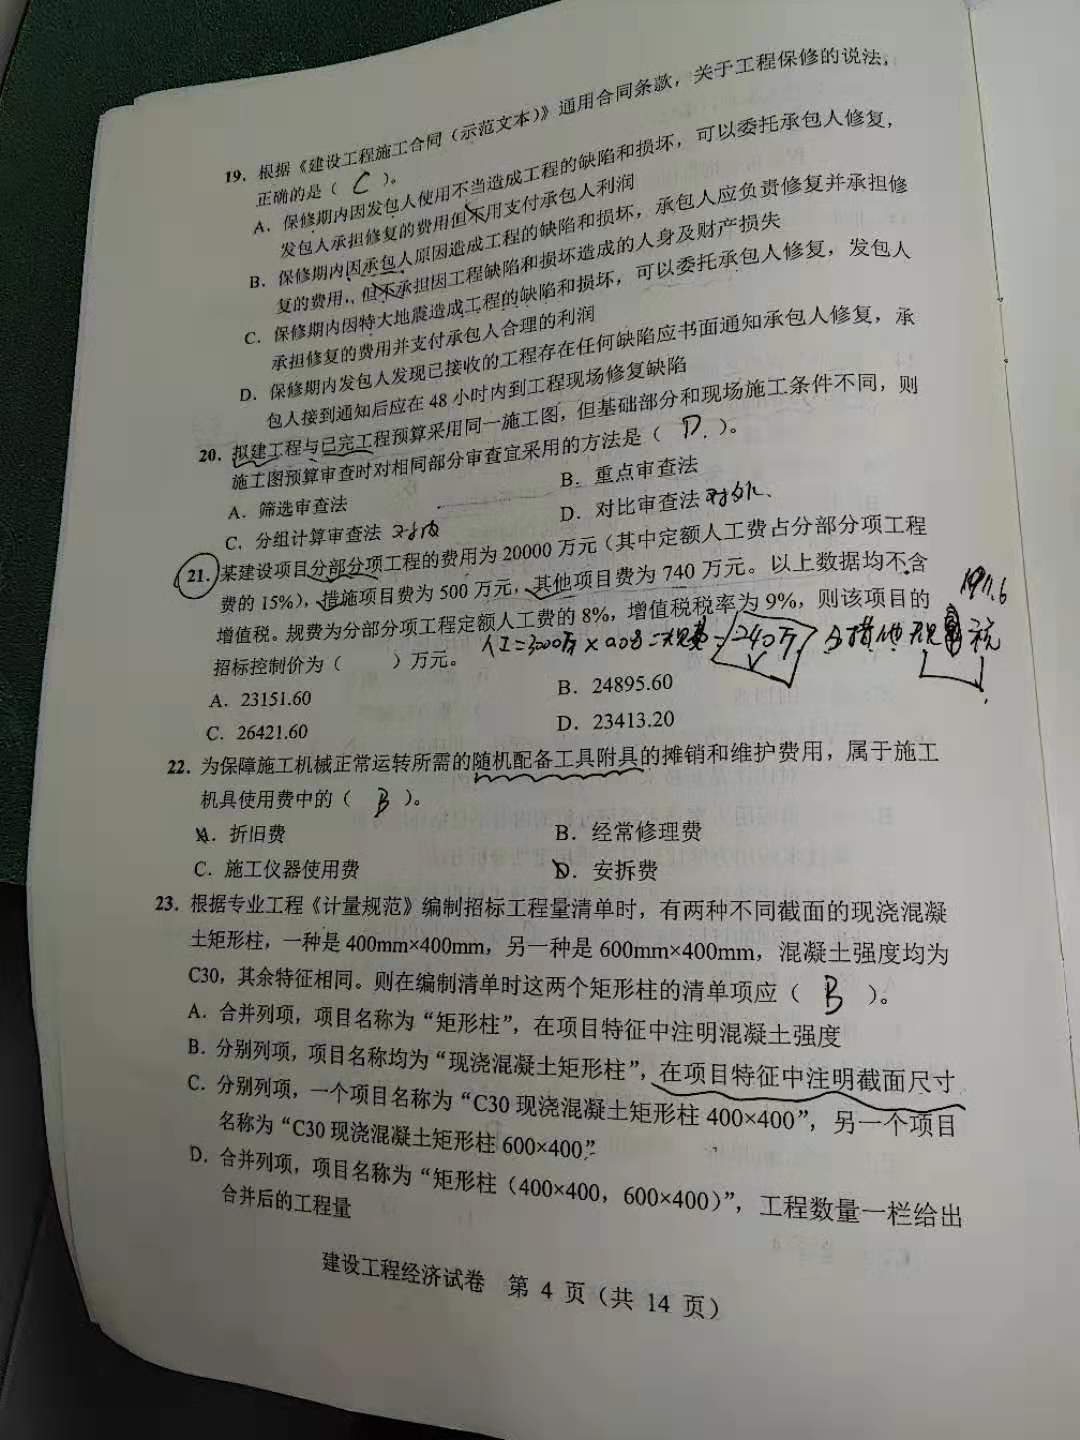 19. 根据《建设工程施工合同（示范文本）》通用合同条款，关于工程保修的说法，
正确的是（ C ）。
A. 保修期内因发包人使用不当造成工程的缺陷和损坏，可以委托承包人修复，
发包人承担修复的费用但不用支付承包人利润
B. 保修期内因承包人原因造成工程的缺陷和损坏，承包人应负责修复并承担修
复的费用，但不承担因工程缺陷和损坏造成的人身及财产损失
C. 保修期内因特大地震造成工程的缺陷和损坏，可以委托承包人修复，发包人
承担修复的费用并支付承包人合理的利润
D. 保修期内发包人发现已接收的工程存在任何缺陷应书面通知承包人修复，承
包人接到通知后应在 48 小时内到工程现场修复缺陷
20. 拟建工程与已完工程预算采用同一施工图，但基础部分和现场施工条件不同，则
施工图预算审查时对相同部分审查宜采用的方法是（ D. ）。
A. 筛选审查法
B. 重点审查法
C. 分组计算审查法 对内
D. 对比审查法 对外.
21. 某建设项目分部分项工程的费用为 20000 万元（其中定额人工费占分部分项工程
费的 15%），措施项目费为 500 万元，其他项目费为 740 万元。以上数据均不含
增值税。规费为分部分项工程定额人工费的 8%，增值税税率为 9%，则该项目的
1911.6
招标控制价为（ ）万元。
人工=3000万×0.08=规费=240万 分措他规 税
A. 23151.60
B. 24895.60
C. 26421.60
D. 23413.20
22. 为保障施工机械正常运转所需的随机配备工具附具的摊销和维护费用，属于施工
机具使用费中的（ B ）。
A. 折旧费
B. 经常修理费
C. 施工仪器使用费
D. 安拆费
23. 根据专业工程《计量规范》编制招标工程量清单时，有两种不同截面的现浇混凝
土矩形柱，一种是 400mm×400mm，另一种是 600mm×400mm，混凝土强度均为
C30，其余特征相同。则在编制清单时这两个矩形柱的清单项应（ B ）。
A. 合并列项，项目名称为“矩形柱”，在项目特征中注明混凝土强度
B. 分别列项，项目名称均为“现浇混凝土矩形柱”，在项目特征中注明截面尺寸
C. 分别列项，一个项目名称为“C30 现浇混凝土矩形柱 400×400”，另一个项目
名称为“C30 现浇混凝土矩形柱 600×400”
D. 合并列项，项目名称为“矩形柱（400×400，600×400）”，工程数量一栏给出
合并后的工程量
建设工程经济试卷 第 4 页（共 14 页）